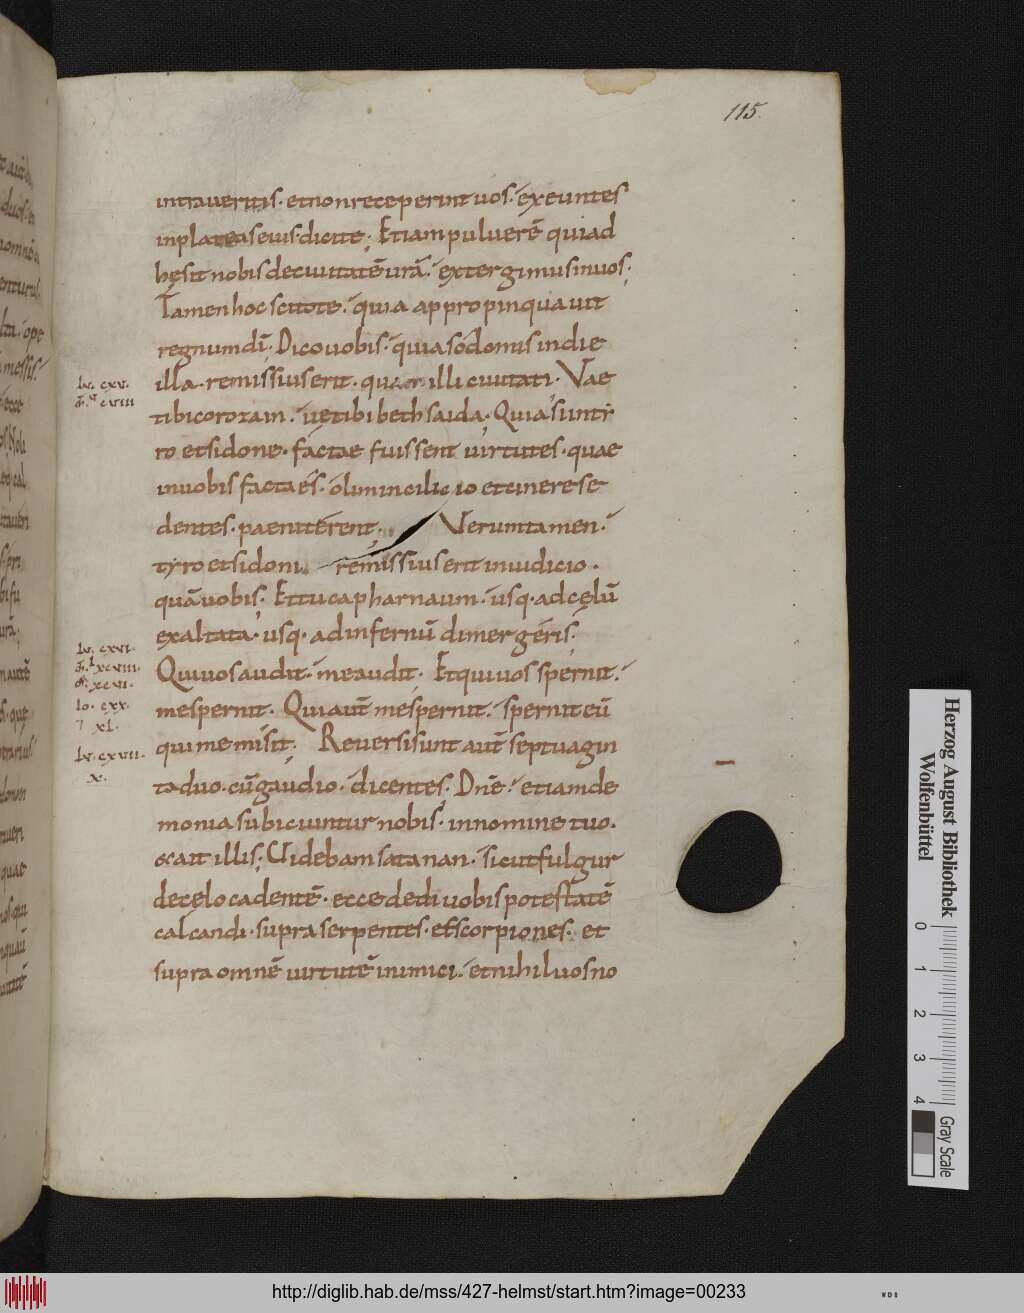 115.
intraveritis. et non receperint uos. exeuntes
in plateas eius. dicite; Etiam puluerē qui ad
hęsit nobis de ciuitatē urā. extergimus in uos;
Tamen hoc scitote. quia appropinquauit
regnum dī. Dico uobis. quia sodomis in die
illa. remissius erit. quam illi ciuitati. Vae
tibi corozain. uę tibi bethsaida; Quia si in ty
ro et sidone. factae fuissent uirtutes. quae
in uobis factae s̄. olim in cilicio et cinere se
dentes. paeniterent; Verumtamen.
tyro et sidoni remissius erit in iudicio.
quā uobis. Et tu capharnaum. usq. ad cęlū
exaltata. usq. ad infernū dimergeris;
Qui uos audit. me audit. Et qui uos spernit.
me spernit. Qui aūt me spernit. spernit eū
qui me misit; Reuersi sunt aūt septuagin
ta duo. cū gaudio. dicentes; Dn̄e. etiam de
monia subiciuntur nobis. in nomine tuo.
& ait illis; Uidebam satanan. sicut fulgur
de cęlo cadentē. ecce dedi uobis potestatē
calcandi. supra serpentes. et scorpiones. et
supra omnē uirtutē inimici. et nihil uos no
lv. cxv.
cviii
lv. cxvi.
xcviii.
xcvi.
io. cxx.
7 xl.
lv. cxvii.
x.
Herzog August Bibliothek
Wolfenbüttel
0 1 2 3 4
Gray Scale
http://diglib.hab.de/mss/427-helmst/start.htm?image=00233